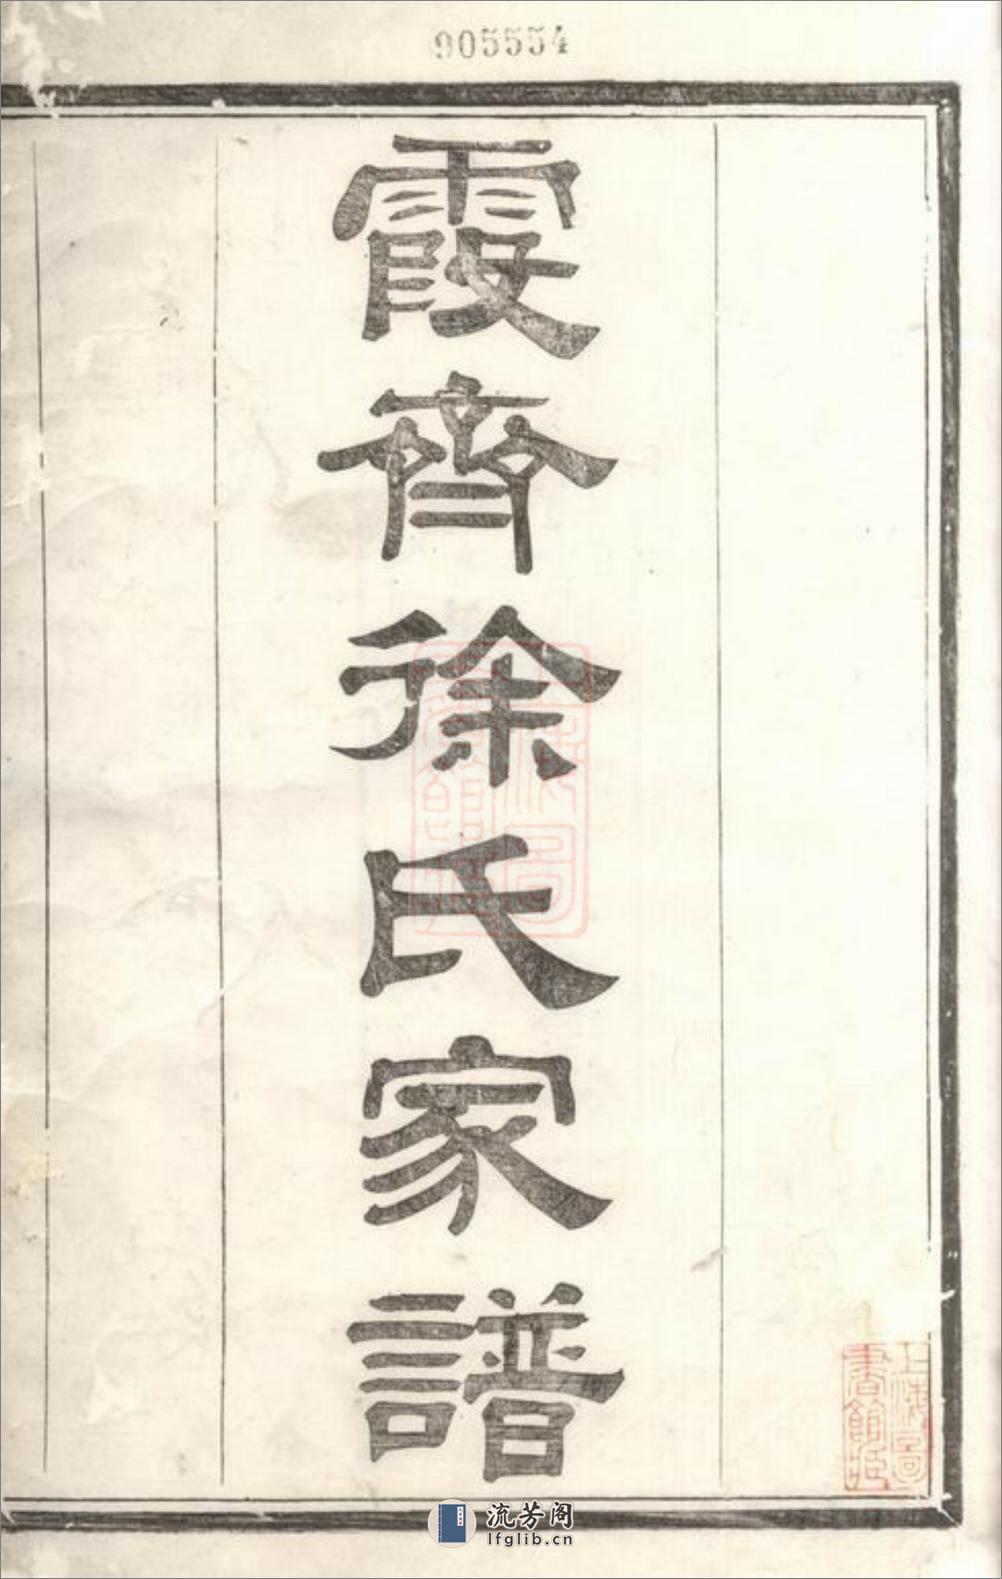 905554
霞齊徐氏家譜
上海圖
書館藏
流芳阁
lfglib.cn